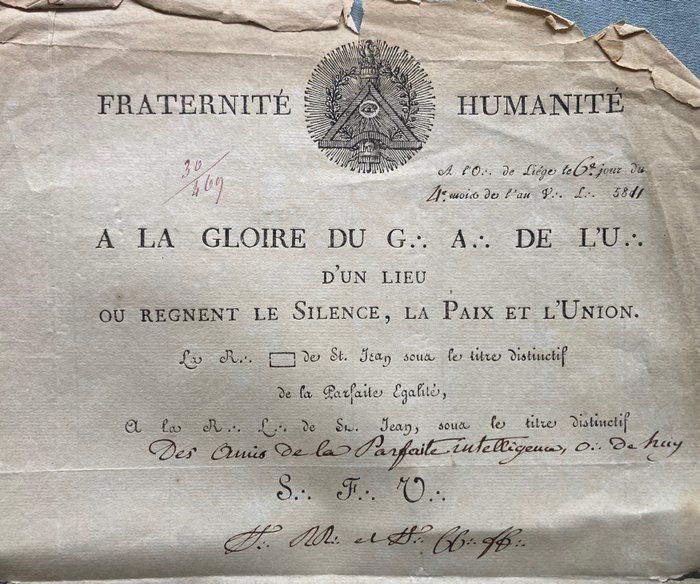 FRATERNITÉ HUMANITÉ
30/469
A l'O∴ de Liége le 6e jour du
4e mois de l'an V∴ L∴ 5811
A LA GLOIRE DU G∴ A∴ DE L'U∴
D'UN LIEU
OU REGNENT LE SILENCE, LA PAIX ET L'UNION.
La R∴ de St. Jean sous le titre distinctif
de la Parfaite Egalité,
A la R∴ L∴ de St. Jean, sous le titre distinctif
Des Amis de la Parfaite intelligence, O∴ de huy
S∴ F∴ U∴
RR∴ et